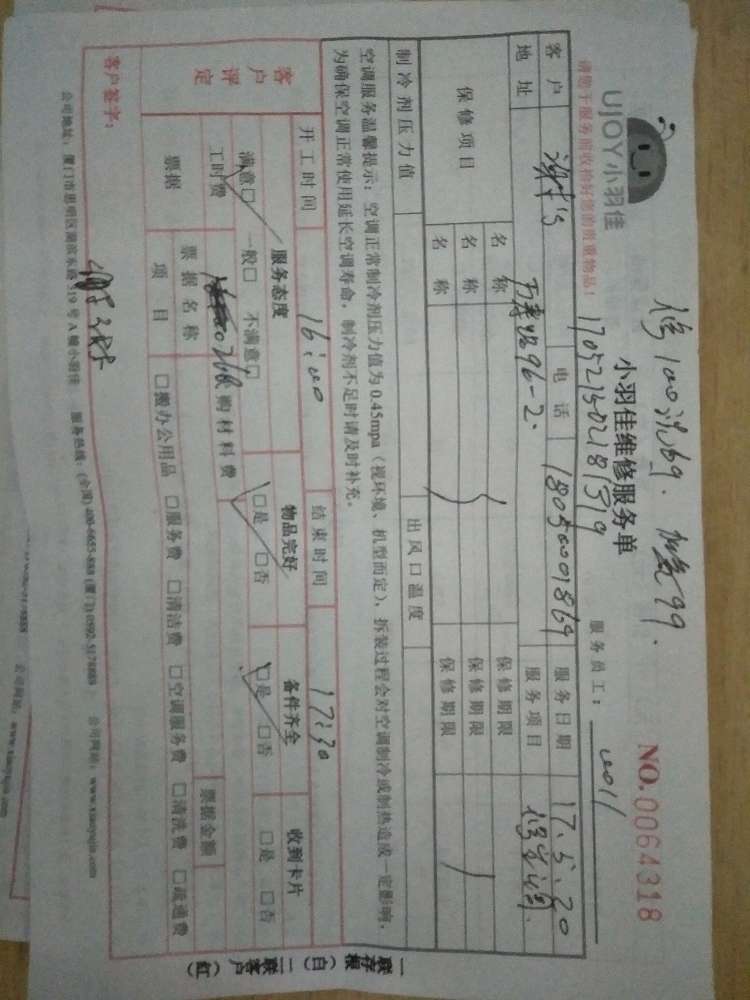 UJOY小羽佳
请您于服务前收检好您的贵重物品！
170521502181319
小羽佳维修服务单
NO.0064318
服务员工：
客户 电话 18050001869 服务日期 17.5.20
地址 96-2. 服务项目 修空调
保修项目 名称 保修期限
名称 保修期限
名称 保修期限
制冷剂压力值 出风口温度
空调服务温馨提示：空调正常制冷剂压力值为0.45mpa（视环境、机型而定），拆装过程会对空调制冷或制热造成一定影响，
为确保空调正常使用延长空调寿命，制冷剂不足时请及时补充。
开工时间 16:00 结束时间 17:30
客户评定 服务态度 物品完好 备件齐全 收到卡片
满意□ 一般□ 不满意□ □是 □否 □是 □否 □是 □否
工时费 购材料费 票据金额
票据 票据名称
项目 □搬办公用品 □服务费 □清洁费 □空调服务费 □清洗费 □疏通费
客户签字：
公司地址：厦门市思明区湖滨东路319号A幢小羽佳 服务热线：(全国) 400-6655-888 (厦门) 0592-5178888 公司网站：www.xiaoyujia.com
一联存根（白）二联客户（红）
公司网站：www.xiaoyujia.com